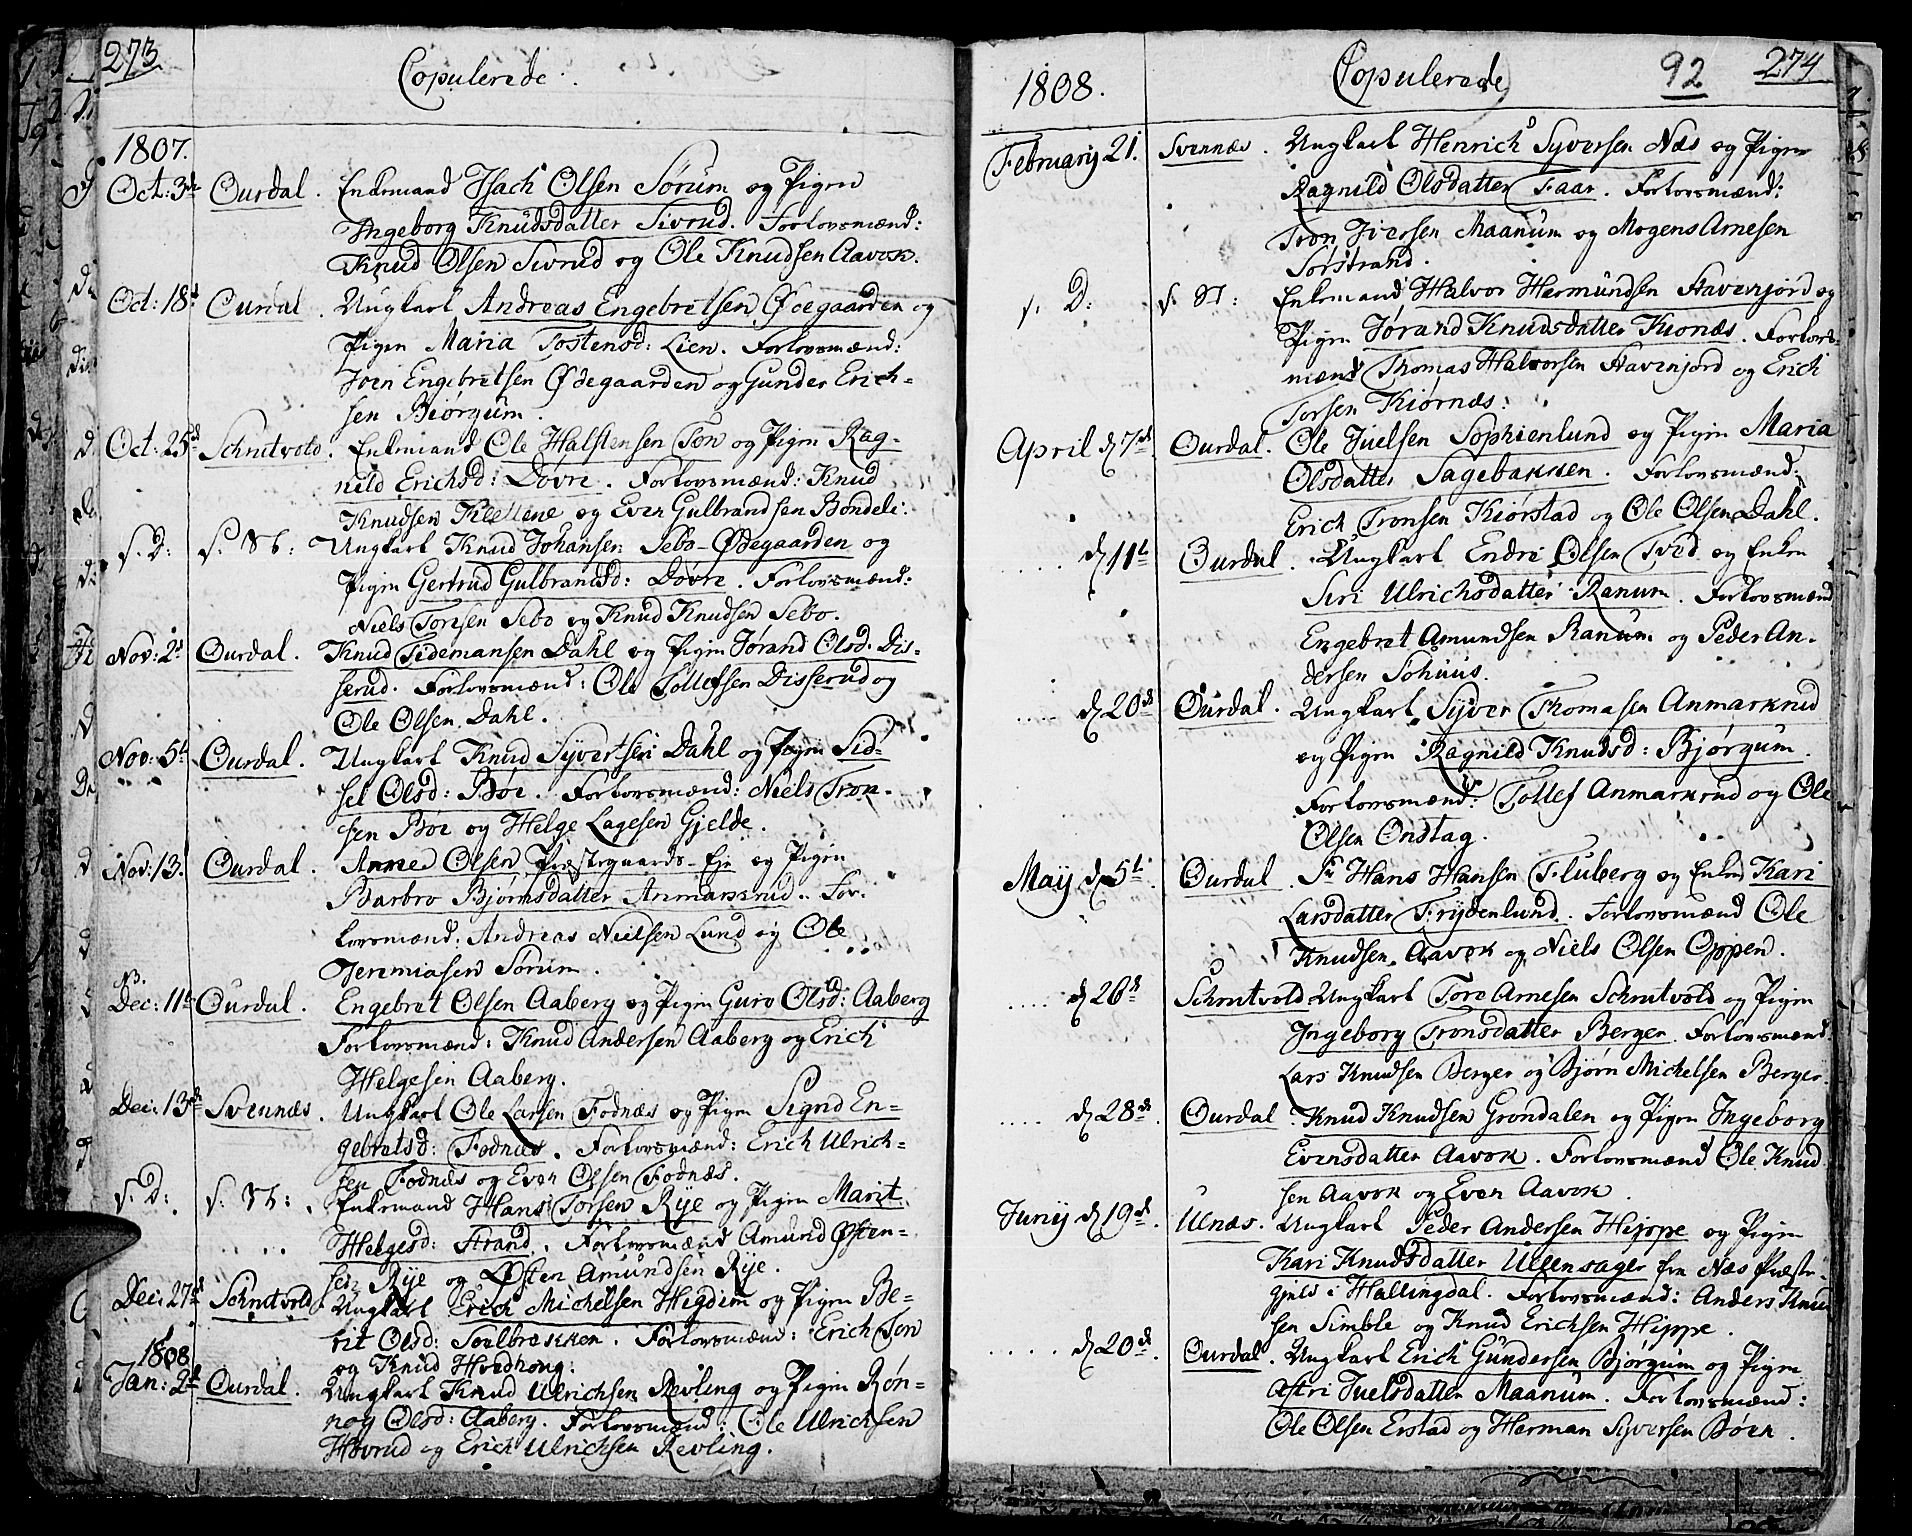 273
Copulerede.
1807.
Oct: 3de Ourdal. Enkemand Isach Olsen Sørum og Pigen
Ingeborg Knudsdatter Sivrud. Forlovsmænd:
Knud Olsen Sivrud og Ole Knudsen Aavok.
Oct: 18d Ourdal. Ungkarl Andreas Engebretsen Ødegaarden og
Pigen Maria Tostensd: Lien. Forlovsmænd:
Joen Engebretsen Ødegaarden og Gunder Erich=
sen Biørgum.
Oct: 25d Schrutvold. Enkemand Ole Halstensen Ton og Pigen Rag-
nild Erichsd: Dovre. Forlovsmænd: Knud
Knudsen Klettene og Even Gulbrandsen Bondeli.
s. D: s. St: Ungkarl Knud Johansen Sebo-Ødegaarden og
Pigen Gertrud Gulbrandsd: Dovre. Forlovsmænd:
Niels Toresen Sebo og Knud Knudsen Sebo.
Nov: 2d Ourdal. Knud Tidemansen Dahl og Pigen Jørand Olsd. Dis-
serud. Forlovsmænd: Ole Tollefsen Disserud og
Ole Olsen Dahl.
Nov: 5t Ourdal. Ungkarl Knud Syvertsen Dahl og Pigen Sid-
sel Olsd: Bøe. Forlovsmænd: Niels Tron-
sen Bøe og Helge Lagesen Gjelde.
Nov: 13. Ourdal. Anne Olsen Præstegaards-Eje og Pigen
Barbro Bjørnsdatter Anmarkrud. For-
lovsmænd: Andreas Nielsen Lund og Ole
Jeremiasen Sørum.
Dec: 11t Ourdal. Engebret Olsen Aaberg og Pigen Guro Olsd: Aaberg
Forlovsmænd: Knud Andersen Aaberg og Erich
Helgesen Aaberg.
Dec: 13de Svennæs. Ungkarl Ole Larsen Fodnæs og Pigen Signd En=
gebretsd: Fodnæs. Forlovsmænd: Erich Ulrich=
sen Fodnæs og Even Olsen Fodnæs.
s. D: s. St: Enkemand Hans Torsen Rye og Pigen Marit
Helgesd: Strand. Forlovsmænd Amund Østen-
sen Rye og Østen Amundsen Rye.
Dec: 27d Schrutvold Ungkarl Erich Michelsen Higdem og Pigen Be-
rit Olsd: Toelbrækken. Forlovsmænd: Erich Ton
og Knud Hvedhong.
1808
Jan: 2d Ourdal. Ungkarl Knud Ulrichsen Revling og Pigen Røn-
nog Olsd: Aaberg. Forlovsmænd: Ole Ulrichsen
Hovrud og Erich Ulrichsen Revling.
274
92
Copulerede
1808.
February 21. Svennæs. Ungkarl Henrich Syversen Næs og Pigen
Ragnild Olsdatter Faar. Forlovsmænd:
Tron Iversen Maanum og Mogens Arnesen
Sørstrand.
s. D: s. St: Enkemand Halvor Hermundsen Stavenjord og
Pigen Jørand Knudsdatter Kiønæs. Forlovs-
mænd Thomas Halvorsen Stavenjord og Erich
Torsen Kiørnæs:
April d 7d Ourdal. Ole Juelsen Sophienlund og Pigen Maria
Olsdatter Sagebakken. Forlovsmænd:
Erich Tronsen Kiørstad og Ole Olsen Dahl.
..... d 11t Ourdal. Ungkarl Endre Olsen Tved og Enken
Siri Ulrichsdatter Ranum. Forlovsmænd
Engebret Amundsen Ranum og Peder An-
dersen Sohuus.
.... d 20d Ourdal. Ungkarl Syver Thomasen Anmarkrud
og Pigen Ragnild Knudsd: Bjørgum.
Forlovsmænd: Tollef Anmarkrud og Ole
Olsen Ondtag.
May d 5t Ourdal. Sr Hans Hansen Fluberg og Enken Kari
Larsdatter Frydenlund. Forlovsmænd Ole
Knudsen Aavok og Niels Olsen Oppen.
.... d 26d Schrutvold Ungkarl Tore Arnesen Schrutvold og Pigen
Ingeborg Tronsdatter Berger. Forlovsmænd
Lars Knudsen Berger og Bjørn Michelsen Berger.
..... d 28d. Ourdal. Knud Knudsen Grøndalen og Pigen Ingeborg
Evensdatter Aavok. Forlovsmænd Ole Knud
sen Aavok og Even Aavok.
Juny d 19d. Ulnæs. Ungkarl Peder Andersen Hippe og Pigen
Kari Knudsdatter Ullensager fra Næs Præste-
gjeld i Hallingdal. Forlovsmænd: Anders Knud
sen Simble og Knud Erichsen Hippe.
..... d 20d. Ourdal. Ungkarl Erich Gundersen Bjørgum og Pigen
Astri Juelsdatter Maanum. Forlovsmænd:
Ole Olsen Erstad og Herman Syversen Bøen.